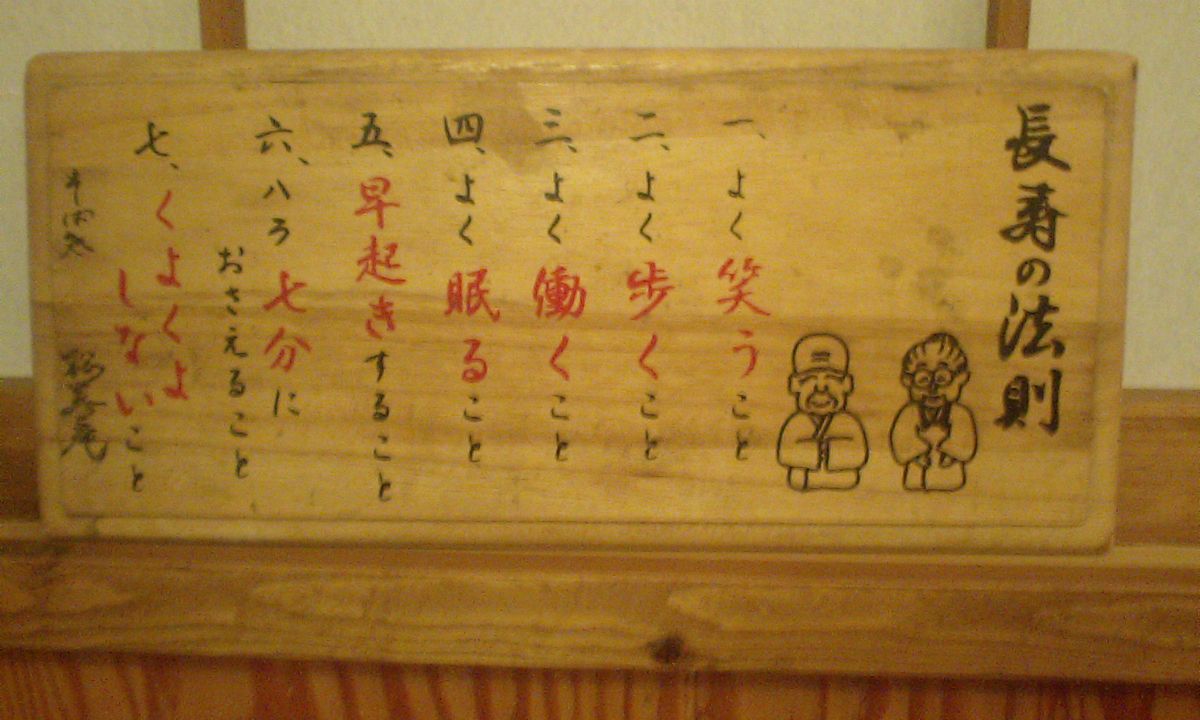 長寿の法則
一、よく笑うこと
二、よく歩くこと
三、よく働くこと
四、よく眠ること
五、早起きすること
六、八ろ七分に
おさえること
七、くよくよ
しないこと